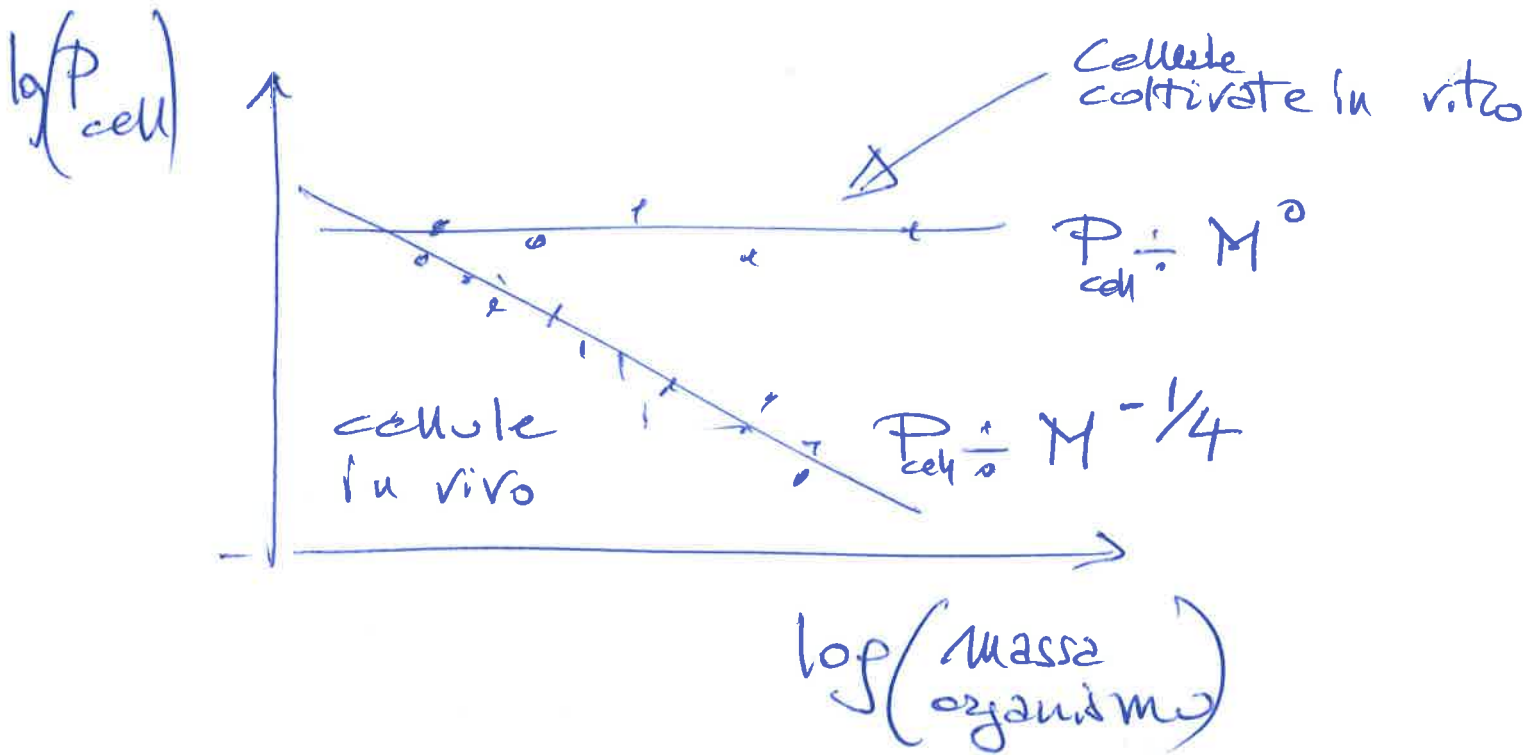 log(P cell)
Cellule
coltivate in vitro
P cell ÷ M^0
cellule
in vivo
P cell ÷ M^-1/4
log(massa
organismo)